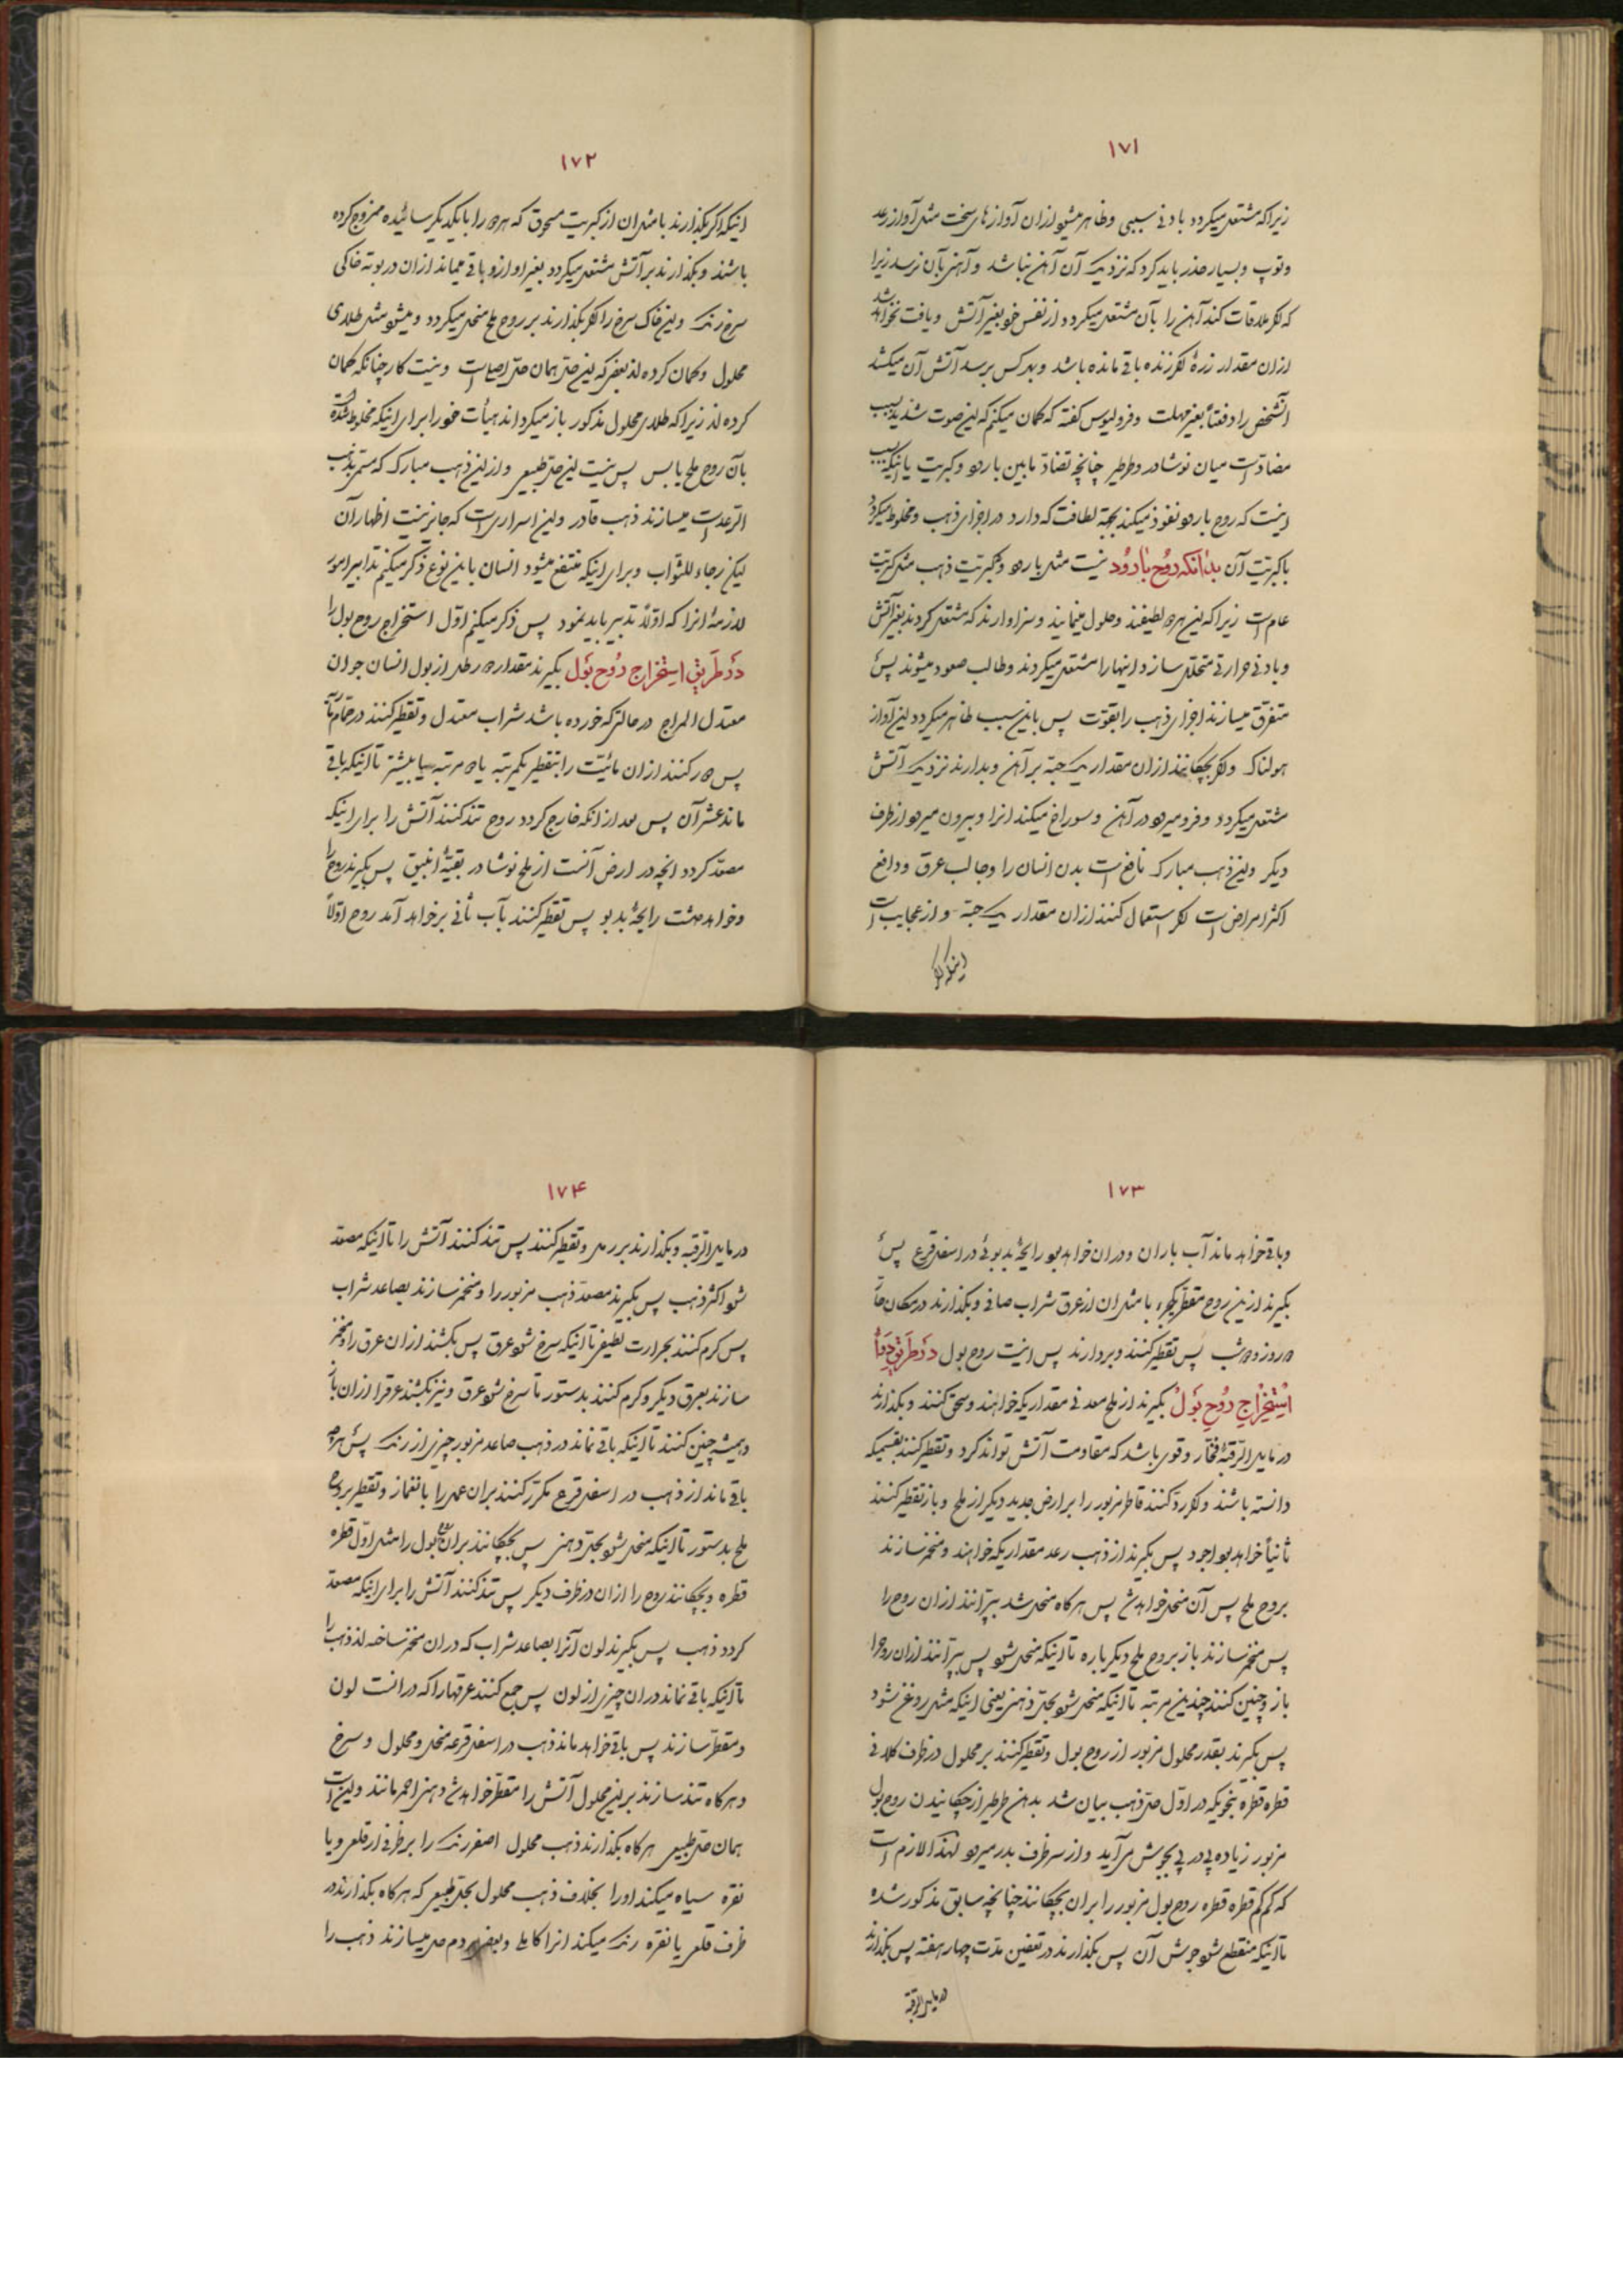 ۱۷۱
زیراکه مشتعل میکردد بادنی سببی وظاهر میشود ازان آوازهای سخت مثل آواز رعد
وتوپ وبسیار حذر باید کرد که نزدیک آن آهن نباشد وآهن بآن نرسد زیرا
که اکر ملاقات کند آهن را بآن مشتعل میکردد از نفس خود بغیر آتش ویافت نخواهد شد
ازان مقدار ذرهٔ اکر زنده باقی مانده باشد وبهر کس برسد آتش آن میکشد
آنشخص را دفعتاً بغیر مهلت وفرولیوس کفته که کمان میکنم که این صوت شدید بسبب
مضادت است میان نوشادر وطرطیر چنانچه تضاد مابین بارود وکبریت یا اینکه سبب
اینست که روح بارود نفوذ میکند بجهة لطافت که دارد در اجزای ذهب ومخلوط میکردد
باکبریت آن بدانکه روح بارود نیست مثل بارود وکبریت ذهب مثل کبریت
عام است زیراکه این هر دو لطیفند وحلول مینمایند وسزاوارند که مشتعل کردند بغیر آتش
وبادنی حرارتی متخلل سازد اینها را مشتعل میکردند وطالب صعود میشوند پس
متفرق میسازند اجزای ذهب را بقوت پس باین سبب ظاهر میکردد این آواز
هولناک واکر بچکانند ازان مقدار یک حبه بر آهن وبدارند نزدیک آتش
مشتعل میکردد وفرو میرود در آهن وسوراخ میکند انرا وبیرون میرود از طرف
دیکر واین ذهب مبارک نافع است بدن انسان را وجالب عرق ودافع
اکثر امراض است اکر استعمال کنند ازان مقدار یک حبه واز عجایب است
اینکه اکر
۱۷۲
اینکه اکر بکذارند بامثل ان از کبریت مسحوق که هر دو را بایکدیکر سائیده ممزوج کرده
باشند وبکذارند بر آتش مشتعل میکردد بغیر اواز وباقی میماند ازان در بوته خاکی
سرخ رنک واین خاک سرخ را اکر بکذارند بر روح ملح منحل میکردد ومیشود مثل طلای
محلول وکمان کرده اند بعضی که این حل همان حل اصلی است ونیست کار چنانکه کمان
کرده اند زیراکه طلای محلول مذکور باز میکرداند هیأت خود را برای اینکه مخلوط شده است
بآن روح ملح یابس پس نیست این حل طبیعی واز این ذهب مبارک که مسمی بذهب
الرعد است میسازند ذهب قادر واین اسراری است که جایز نیست اظهار آن
لیکن رجاء للثواب وبرای اینکه منتفع میشود انسان باین نوع ذکر میکنم تدابیر امور
لازمهٔ انرا که اولاً تدبیر باید نمود پس ذکر میکنم اول استخراج روح بول را
در طریق استخراج روح بول بکیرند مقدار ده رطل از بول انسان جوان
معتدل المزاج در حالتی که خورده باشد شراب معتدل وتقطیر کنند در حمام ماریه
پس دور کنند ازان مائیّت را بتقطیر یکمرتبه یا دو مرتبه یا بیشتر تا اینکه باقی
ماند عشر آن پس بعد از انکه خارج کردد روح تند کنند آتش را برای اینکه
مصعد کردد انچه در ارض آنست از ملح نوشادر بقبهٔ انبیق پس بکیرند روح را
وخواهد داشت رایحهٔ بدبو پس تقطیر کنند بآب ثانی برخواهد آمد روح اولاً
۱۷۳
وباقی خواهد ماند آب باران ودران خواهد بود رایحهٔ بدبوئی در اسفل قرع پس
بکیرند ازین روح مقطر یکجزء بامثل ان از عرق شراب صافی وبکذارند در مکان حار
ده روز وده شب پس تقطیر کنند وبردارند پس اینست روح بول در طریق دویم
استخراج روح بول بکیرند از ملح معدنی مقداریکه خواهند وسحق کنند وبکذارند
در مایل الرقبهٔ فخار وقوی باشد که مقاومت آتش تواند کرد وتقطیر کنند بقسمیکه
دانسته باشند واکر رد کنند قاطر مزبور را بر ارض جدید دیکر از ملح وباز تقطیر کنند
ثانیاً خواهد بود اجود پس بکیرند از ذهب رعد مقداریکه خواهند ومخمر سازند
بروح ملح پس آن منحل خواهد شد پس هر کاه منحل شد بپرانند ازان روح را
پس مخمر سازند باز بروح ملح دیکرباره تا اینکه منحل شود پس بپرانند ازان روح را
باز وچنین کنند چندین مرتبه تا اینکه منحل شود بحل دهنی یعنی اینکه مثل روغن شود
پس بکیرند بقدر محلول مزبور از روح بول وتقطیر کنند بر محلول در ظرف کلانی
قطره قطره بنحویکه در اول حل ذهب بیان شد بدهن طرطیر از چکانیدن روح بول
مزبور زیاده پی در پی بجوش می آید واز سر ظرف بدر میرود لهذا لازم است
که کم کم قطره قطره روح بول مزبور را بران بچکانند چنانچه سابق مذکور شده
تا اینکه منقطع شود جوش آن پس بکذارند در تعفین مدت چهار هفته پس بکذارند
در مایل الرقبة
۱۷۴
در مایل الرقبه وبکذارند بر رمل وتقطیر کنند پس تند کنند آتش را تا اینکه مصعد
شود اکثر ذهب پس بکیرند مصعد ذهب مزبور را ومخمر سازند بصاعد شراب
پس کرم کنند بحرارت لطیفی تا اینکه سرخ شود عرق پس بکشند ازان عرق را ومخمر
سازند بعرق دیکر وکرم کنند بدستور تا سرخ شود عرق ونیز بکشند عرقرا ازان باز
وهمیشه چنین کنند تا اینکه باقی نماند در ذهب صاعد مزبور چیزی از رنک پس هرچه
باقی ماند از ذهب در اسفل قرع مکرر کنند بران عمل را بانغماز وتقطیر بروح
ملح بدستور تا اینکه منحل شود بحل دهنی پس بچکانند بران روح بول را مثل اول قطره
قطره وبچکانند روح را ازان در ظرف دیکر پس تند کنند آتش را برای اینکه مصعد
کردد ذهب پس بکیرند لون آنرا بصاعد شراب که دران مخمر ساخته اند ذهب را
تا اینکه باقی نماند دران چیزی از لون پس جمع کنند عرقها را که در انست لون
ومقطر سازند پس باقی خواهد ماند ذهب در اسفل قرعه منحل ومحلول وسرخ
وهر کاه تند سازند بر این محلول آتش را مقطر خواهد شد دهنی احمر مانند واین است
همان حل طبیعی هر کاه بکذارند ذهب محلول اصفر رنک را بر ظرفی از قلعی ویا
نقره سیاه میکند اورا بخلاف ذهب محلول بحل طبیعی که هر کاه بکذارند در
ظرف قلعی یا نقره رنک میکند انرا کاملی وبعضی مردم حل میسازند ذهب را